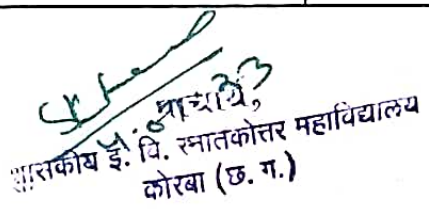 प्राचार्य,
शासकीय ई. वि. स्नातकोत्तर महाविद्यालय
कोरबा (छ. ग.)